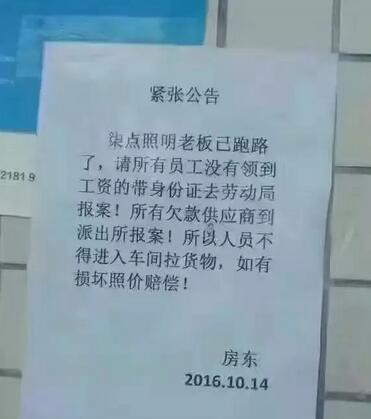 紧张公告
柒点照明老板已跑路
了，请所有员工没有领到
工资的带身份证去劳动局
报案！所有欠款供应商到
派出所报案！所以人员不
得进入车间拉货物，如有
损坏照价赔偿！
房东
2016.10.14
2181 9